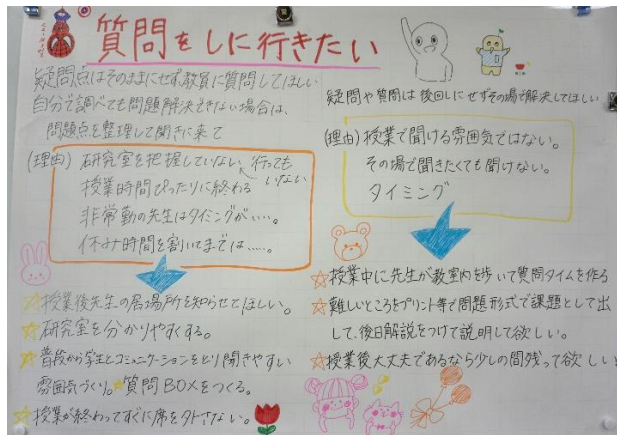 質問をしに行きたい
疑問点はそのままにせず教員に質問してほしい
自分で調べても問題解決できない場合は、
問題点を整理して聞きに来て
(理由) 研究室を把握していない 行っても
いない
授業時間ぴったりに終わる
非常勤の先生はタイミングが…。
休み時間を割いてまでは……。
☆授業後先生の居場所を知らせてほしい。
☆研究室を分かりやすくする。
☆普段から学生とコミュニケーションをとり聞きやすい
雰囲気づくり。☆質問BOXをつくる。
☆授業が終わってすぐに席を外さない。
疑問や質問は後回しにせずその場で解決してほしい
(理由) 授業で聞ける雰囲気ではない。
その場で聞きたくても聞けない。
タイミング
☆授業中に先生が教室内を歩いて質問タイムを作る
☆難しいところをプリント等で問題形式で課題として出
して、後日解説をつけて説明して欲しい。
☆授業後大丈夫であるなら少しの間残って欲しい